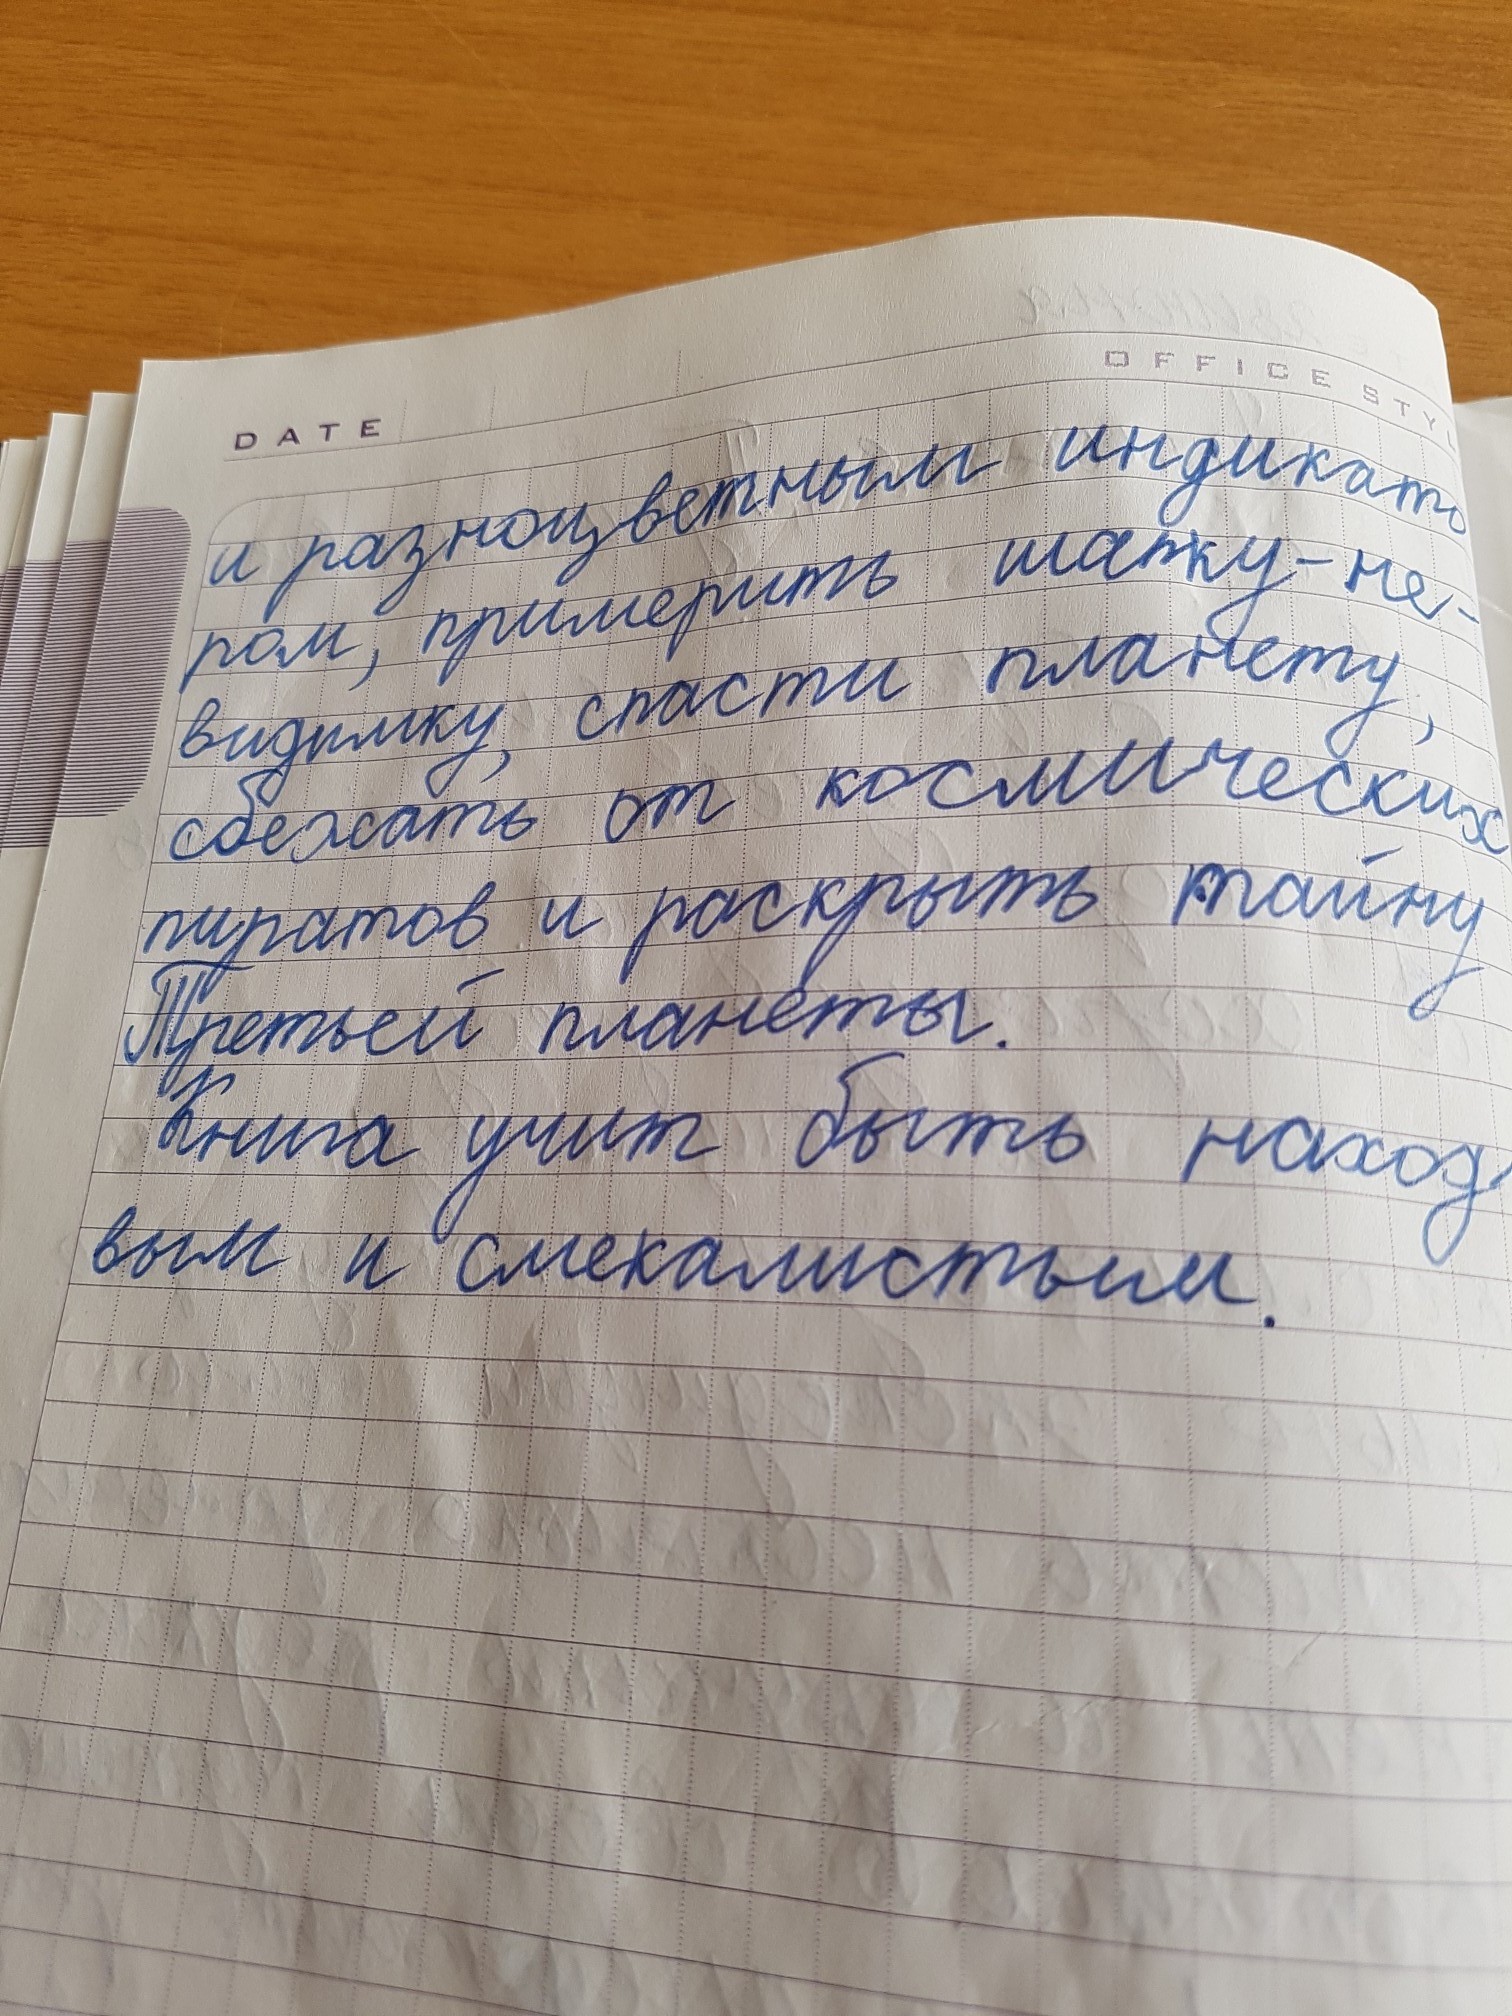 DATE
OFFICE STYL
и разноцветным индикато
ром, примерить шапку-не-
видимку, спасти планету,
сбежать от космических
пиратов и раскрыть тайну
Третьей планеты.
Книга учит быть наход
вым и смекалистым.